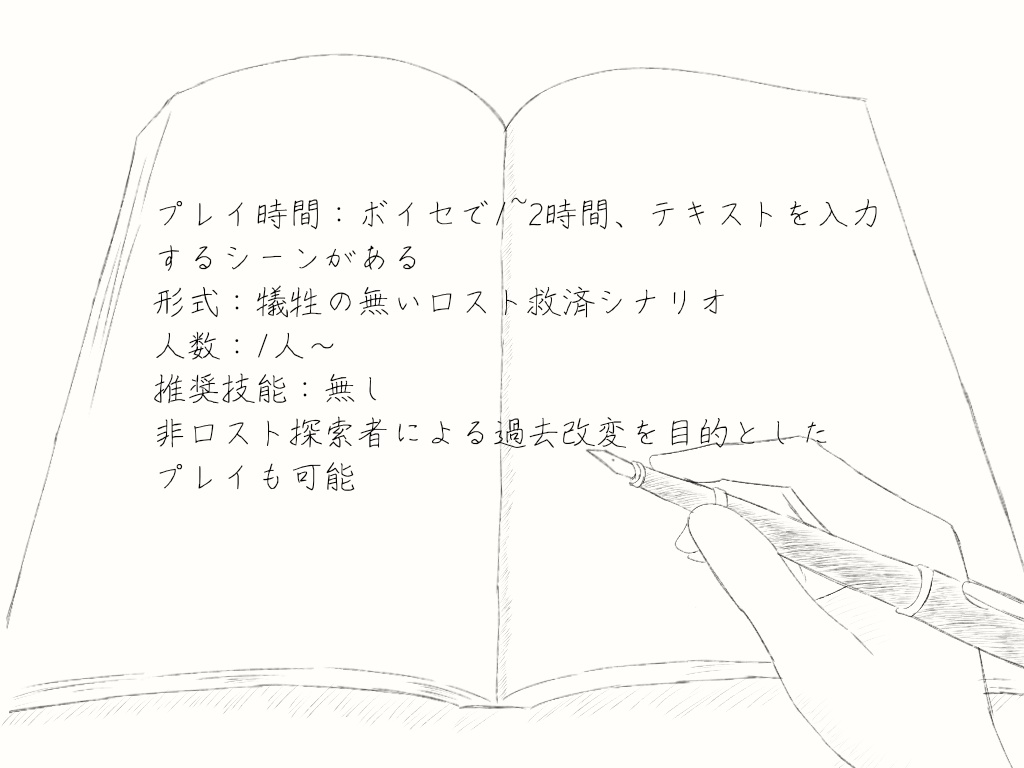 プレイ時間：ボイセで1~2時間、テキストを入力
するシーンがある
形式：犠牲の無いロスト救済シナリオ
人数：1人～
推奨技能：無し
非ロスト探索者による過去改変を目的とした
プレイも可能